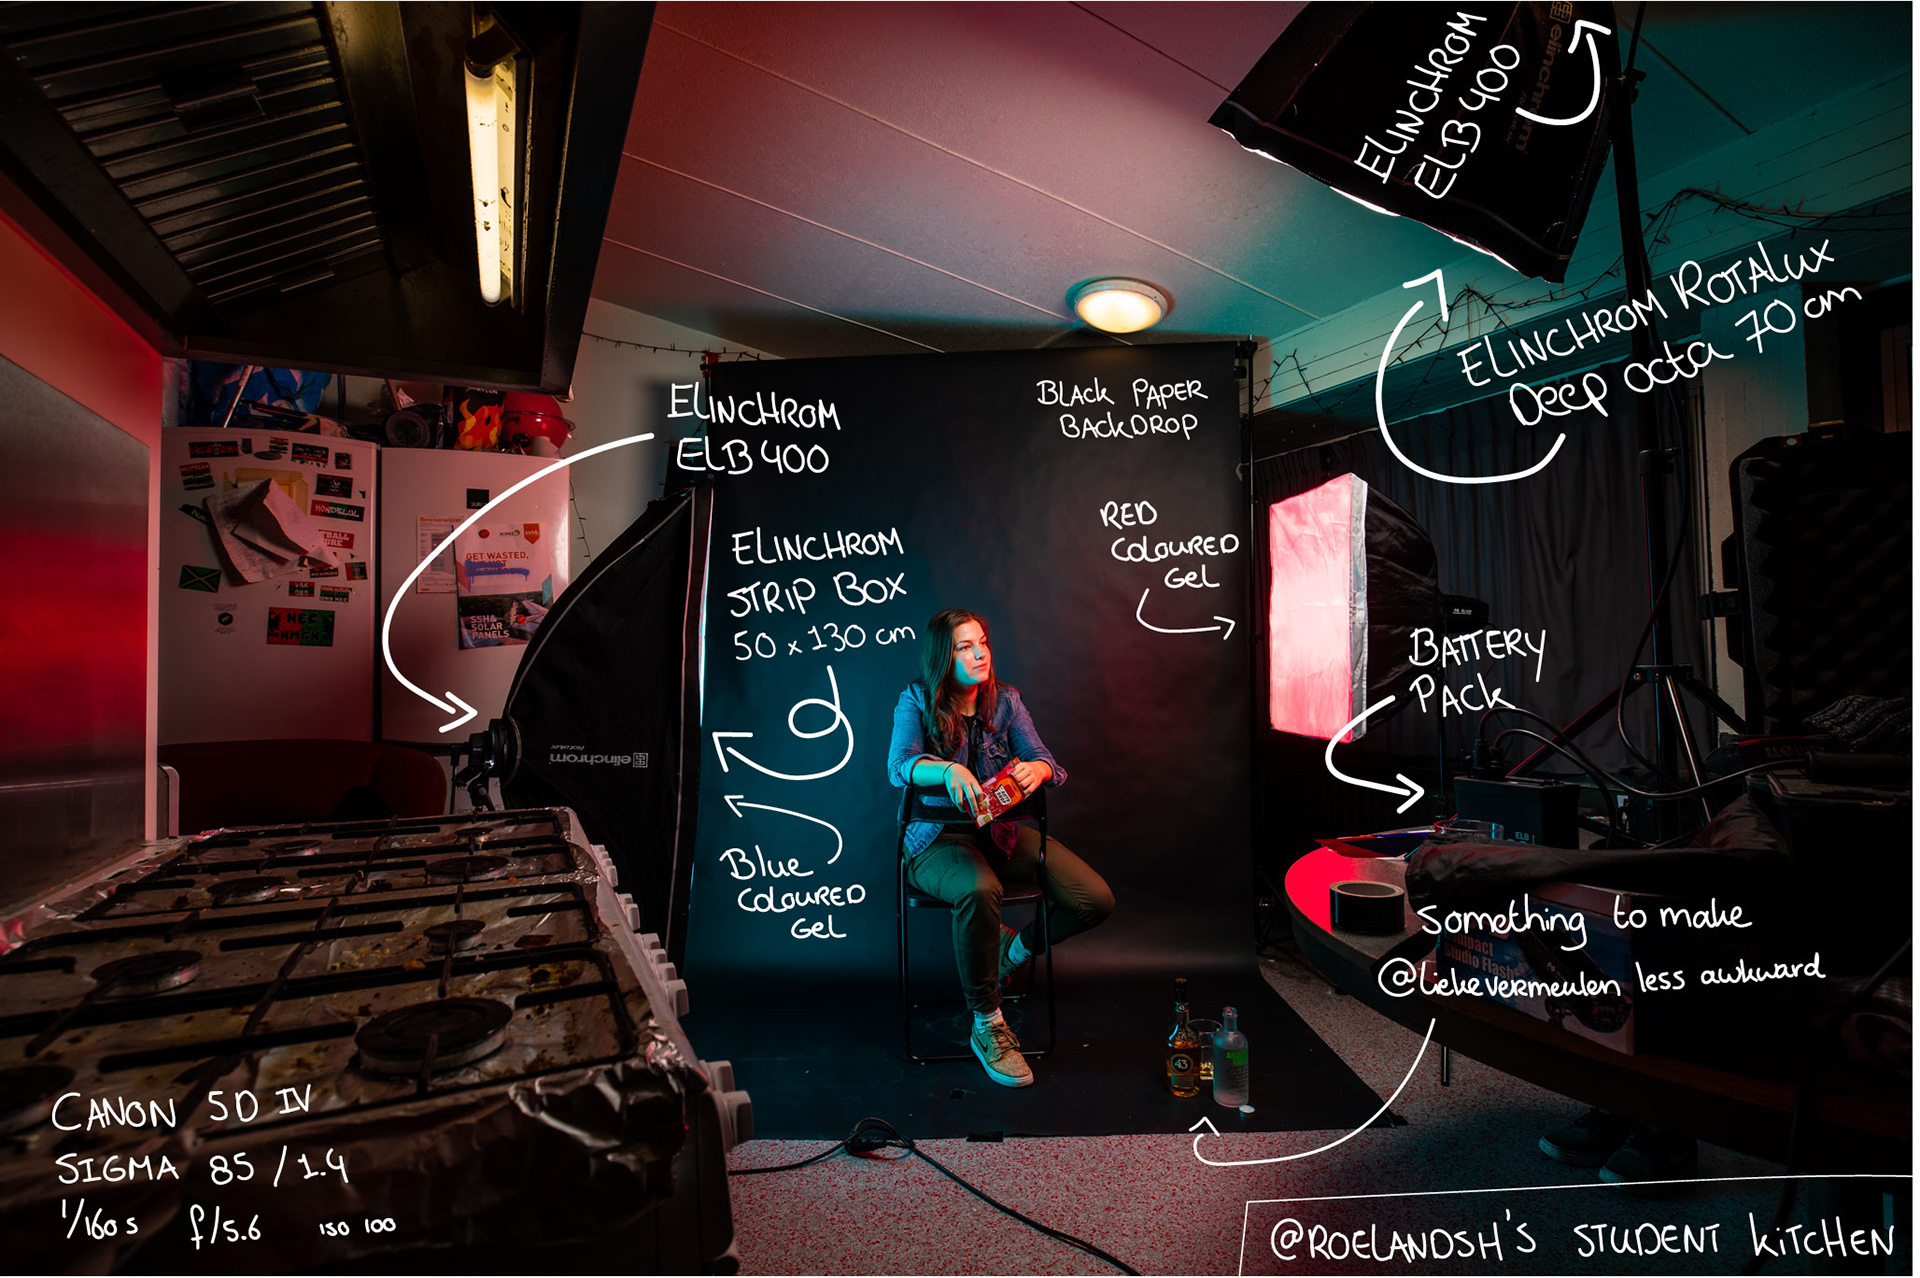 ELINCHROM
ELB 400
elinchrom
ELINCHROM ROTALUX
Deep octa 70 cm
ELINCHROM
ELB 400
BLACK PAPER
BACKDROP
RED
COLOURED
GEL
ELINCHROM
STRIP BOX
50 x 130 cm
GET WASTED,
SSH&
SOLAR
PANELS
BATTERY
PACK
elinchrom
Rotalux
ELB
Blue
COLOURED
GEL
Something to make
@liekevermeulen less awkward
Studio Flash
43
CANON 5D IV
SIGMA 85 / 1.4
1/160 s f/5.6 ISO 100
@ROELANDSH'S STUDENT KITCHEN